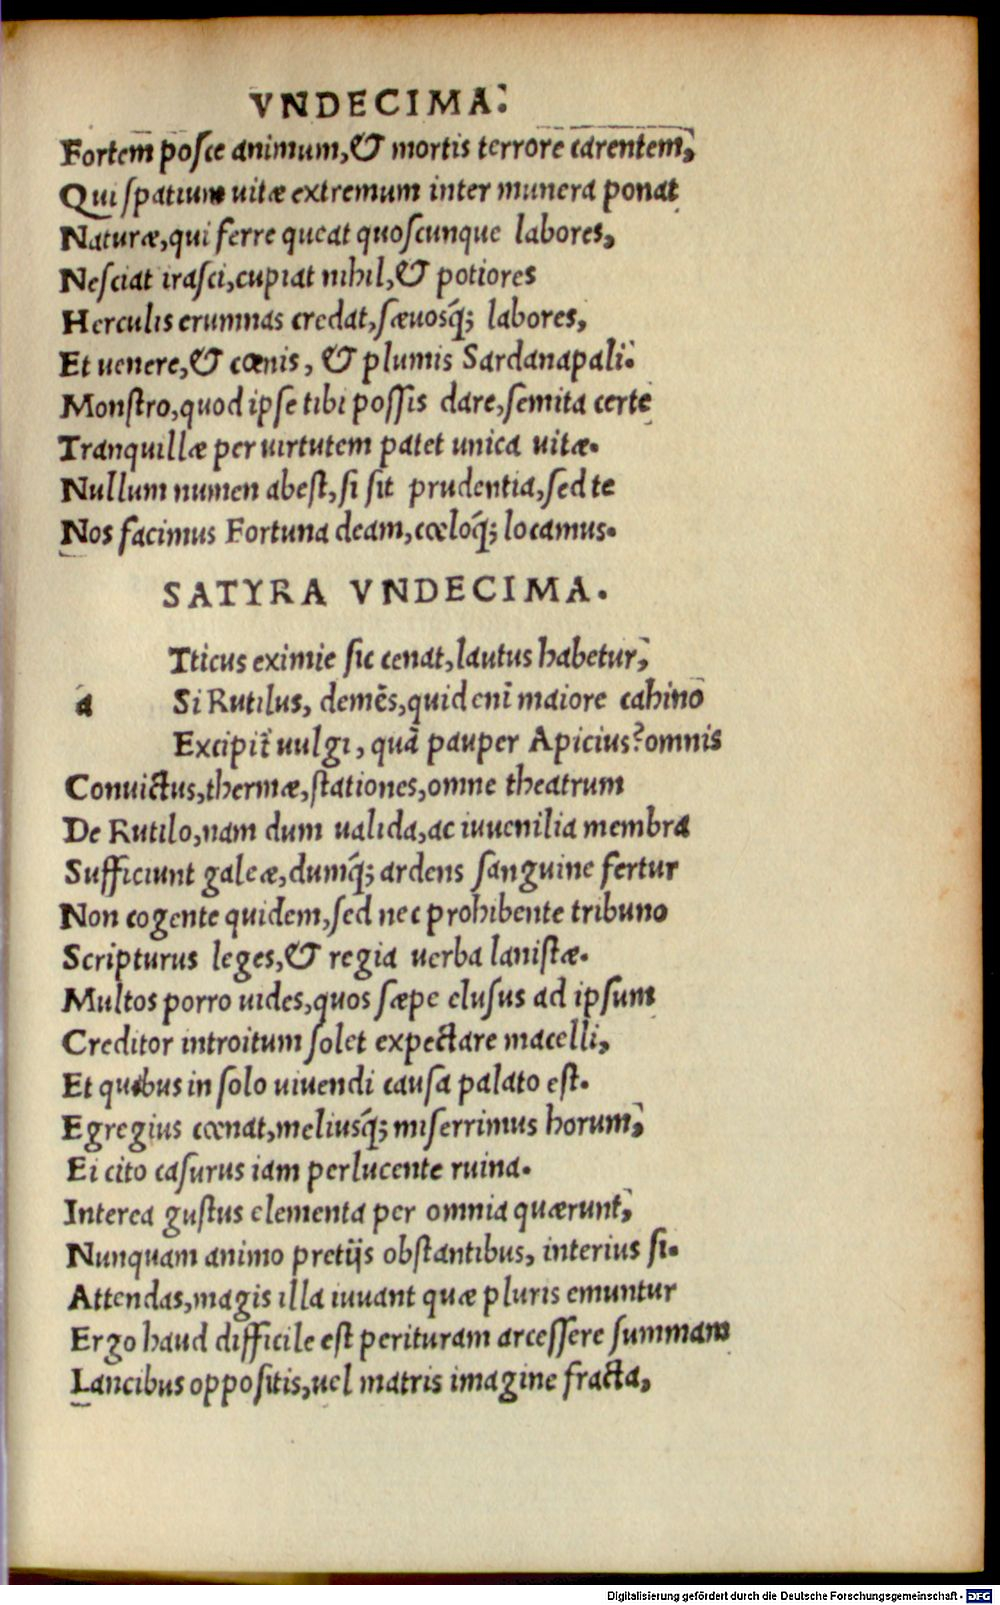 VNDECIMA.
Fortem posce animum, & mortis terrore carentem,
Qui spatium uitæ extremum inter munera ponat
Naturæ, qui ferre queat quoscunque labores,
Nesciat irasci, cupiat nihil, & potiores
Herculis erumnas credat, sæuosq́; labores,
Et uenere, & cœnis, & plumis Sardanapali.
Monstro, quod ipse tibi possis dare, semita certe
Tranquillæ per uirtutem patet unica uitæ.
Nullum numen abest, si sit prudentia, sed te
Nos facimus Fortuna deam, cœloq́; locamus.
SATYRA VNDECIMA.
Tticus eximie sic cenat, lautus habetur,
a Si Rutilus, demẽs, quid enĩ maiore cahinõ
Excipit̃ uulgi, quã pauper Apicius? omnis
Conuictus, thermæ, stationes, omne theatrum
De Rutilo, nam dum ualida, ac iuuenilia membra
Sufficiunt galeæ, dumq́; ardens sanguine fertur
Non cogente quidem, sed nec prohibente tribuno
Scripturus leges, & regia uerba lanistæ.
Multos porro uides, quos sæpe elusus ad ipsum
Creditor introitum solet expectare macelli,
Et quibus in solo uiuendi causa palato est.
Egregius cœnat, meliusq́; miserrimus horum,
Ei cito casurus iam perlucente ruina.
Interea gustus elementa per omnia quærunt,
Nunquam animo pretijs obstantibus, interius si.
Attendas, magis illa iuuant quæ pluris emuntur
Ergo haud difficile est perituram arcessere summam
Lancibus oppositis, uel matris imagine fracta,
Digitalisierung gefördert durch die Deutsche Forschungsgemeinschaft - DFG